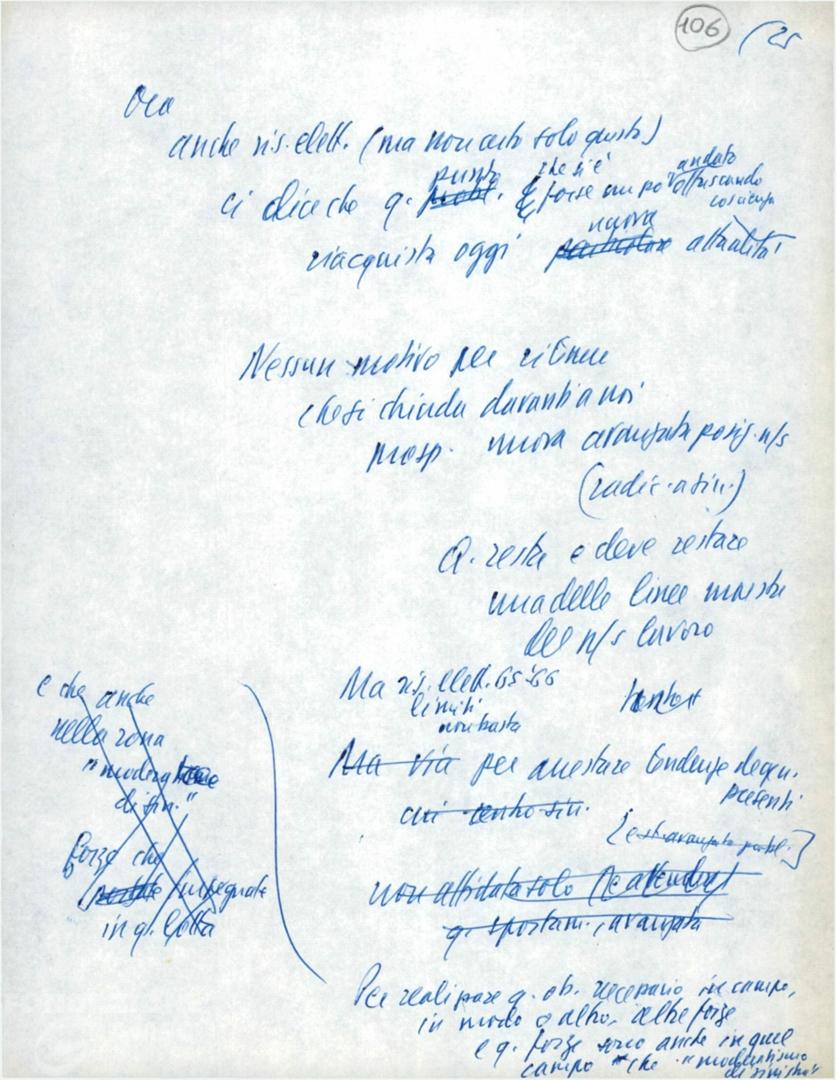 106 (25
Ora
anche ris. elett. (ma non certo solo questo)
punto che si è andato
ci dice che q. probl. forse un po' offuscando
coscienza
nuova
riacquista oggi particolare attualità
Nessun motivo per ritenere
che si chiuda davanti a noi
prosp. nuova avanzata posiz. n/s
(radic. a sin.)
Q. resta e deve restare
una delle linee maestre
del n/s lavoro
Ma ris. elett. 65-66
limiti
non basta
Ma via per arrestare tendenze degen.
presenti
cui centro-sin.
non affidata solo (e attendere)
q. spostam., avanzata
e che anche
nella zona
"moderata
di sin."
forze che
impegnate
in q. lotta
Per realizzare q. ob. necessario in campo,
in modo o altro, altre forze
e q. forze sono anche in quel
campo che "moderatismo
di sinistra"